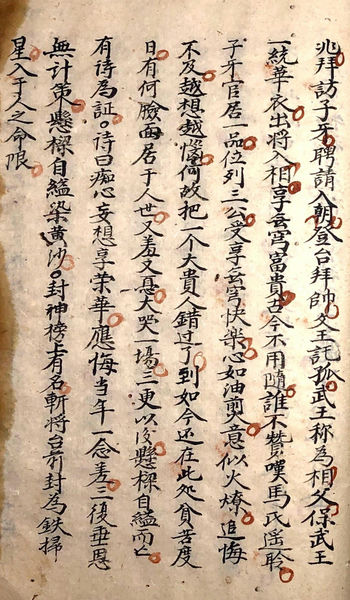 兆拜訪子牙聘請入朝登台拜帥父王託孤武王称為相父保武王
一統華衣出将入相享無窮富貴古今不用隨誰不贊嘆馬氏遥聆
子牙官居一品位列三公受享無穷快楽心如油煎意似火燎追悔
不及越想越惱何故把一个大貴人錯过了到如今还在此处貧苦度
日有何臉面居于人世又羞又愚大哭一場三更以後懸樑自縊而亡
有诗為証。诗曰痴心妄想享荣華應悔当年一念差三復垂恩
無計策懸樑自縊染黄沙。封神榜上有名斬将台前封為鉄掃
星入于人之命限